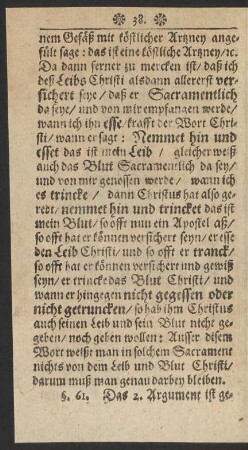 ❁ 38. ❁
nem Gefäß mit köstlicher Artzney ange-
fült sage: das ist eine köstliche Artzney/ꝛc.
Da dann ferner zu mercken ist/ daß ich
deß Leibs Christi alsdann allererst ver-
sichert seye/ daß er Sacramentlich
da seye/ und von mir empfangen werde/
wann ich ihn esse/ krafft der Wort Chri-
sti/ wann er sagt: Nemmet hin und
esset das ist mein Leib/ gleicher weiß
auch das Blut Sacramentlich da sey/
und von mir genossen werde/ wann ich
es trincke/ dann Christus hat also ge-
redt/ nemmet hin und trincket das ist
mein Blut/ so offt nun ein Apostel aß/
so offt hat er können versichert seyn/ er esse
den Leib Christi/ und so offt er tranck/
so offt hat er können versichert und gewiß
seyn/ er trincke das Blut Christi/ und
wann er hingegen nicht gegessen oder
nicht getruncken/ so hab ihm Christus
auch seinen Leib und sein Blut nicht ge-
geben/ noch geben wollen: Ausser disem
Wort weißt man in solchem Sacrament
nichts von dem Leib und Blut Christi/
darum muß man genau darbey bleiben.
§. 61. Das 2. Argument ist ge-